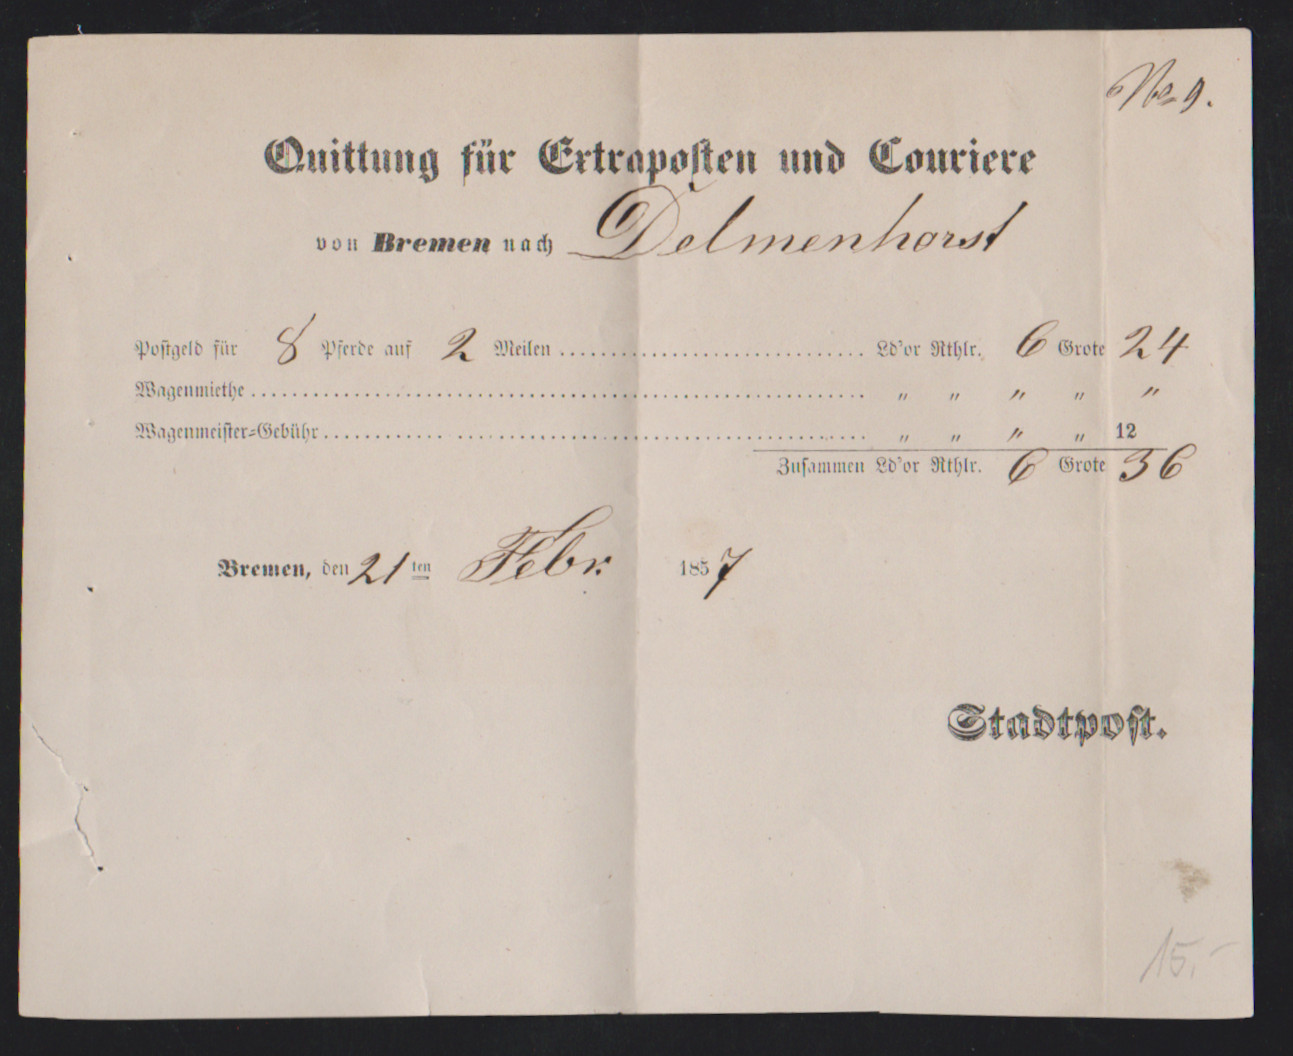 No 9.
Quittung für Extraposten und Couriere
von Bremen nach Delmenhorst
Postgeld für 8 Pferde auf 2 Meilen ........................................ Ld'or Rthlr. 6 Grote 24
Wagenmiethe ........................................ " " " " "
Wagenmeister-Gebühr ........................................ " " " " 12
Zusammen Ld'or Rthlr. 6 Grote 36
Bremen, den 21 ten Febr. 1857
Stadtpost.
15,-